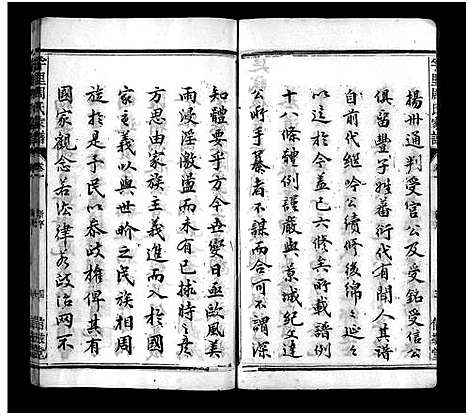 楊州通判受官公及受銘受信公
俱留豐子姓蕃衍代有聞人其譜
自前代継吟公續修後綿々延々
以迄於今盖已六修矣所載譜例
十八條體例謹嚴與景誠紀文達
公所手纂者不謀而合可不謂深
知體要乎方今世變日亟歐風美
雨浸淫激盪已為據時之彥
方思由家族主義進而入於國
家主義以與世畍之民族相周
旋於是予民以参政權俾其有
國家觀念若法律若政治罔不